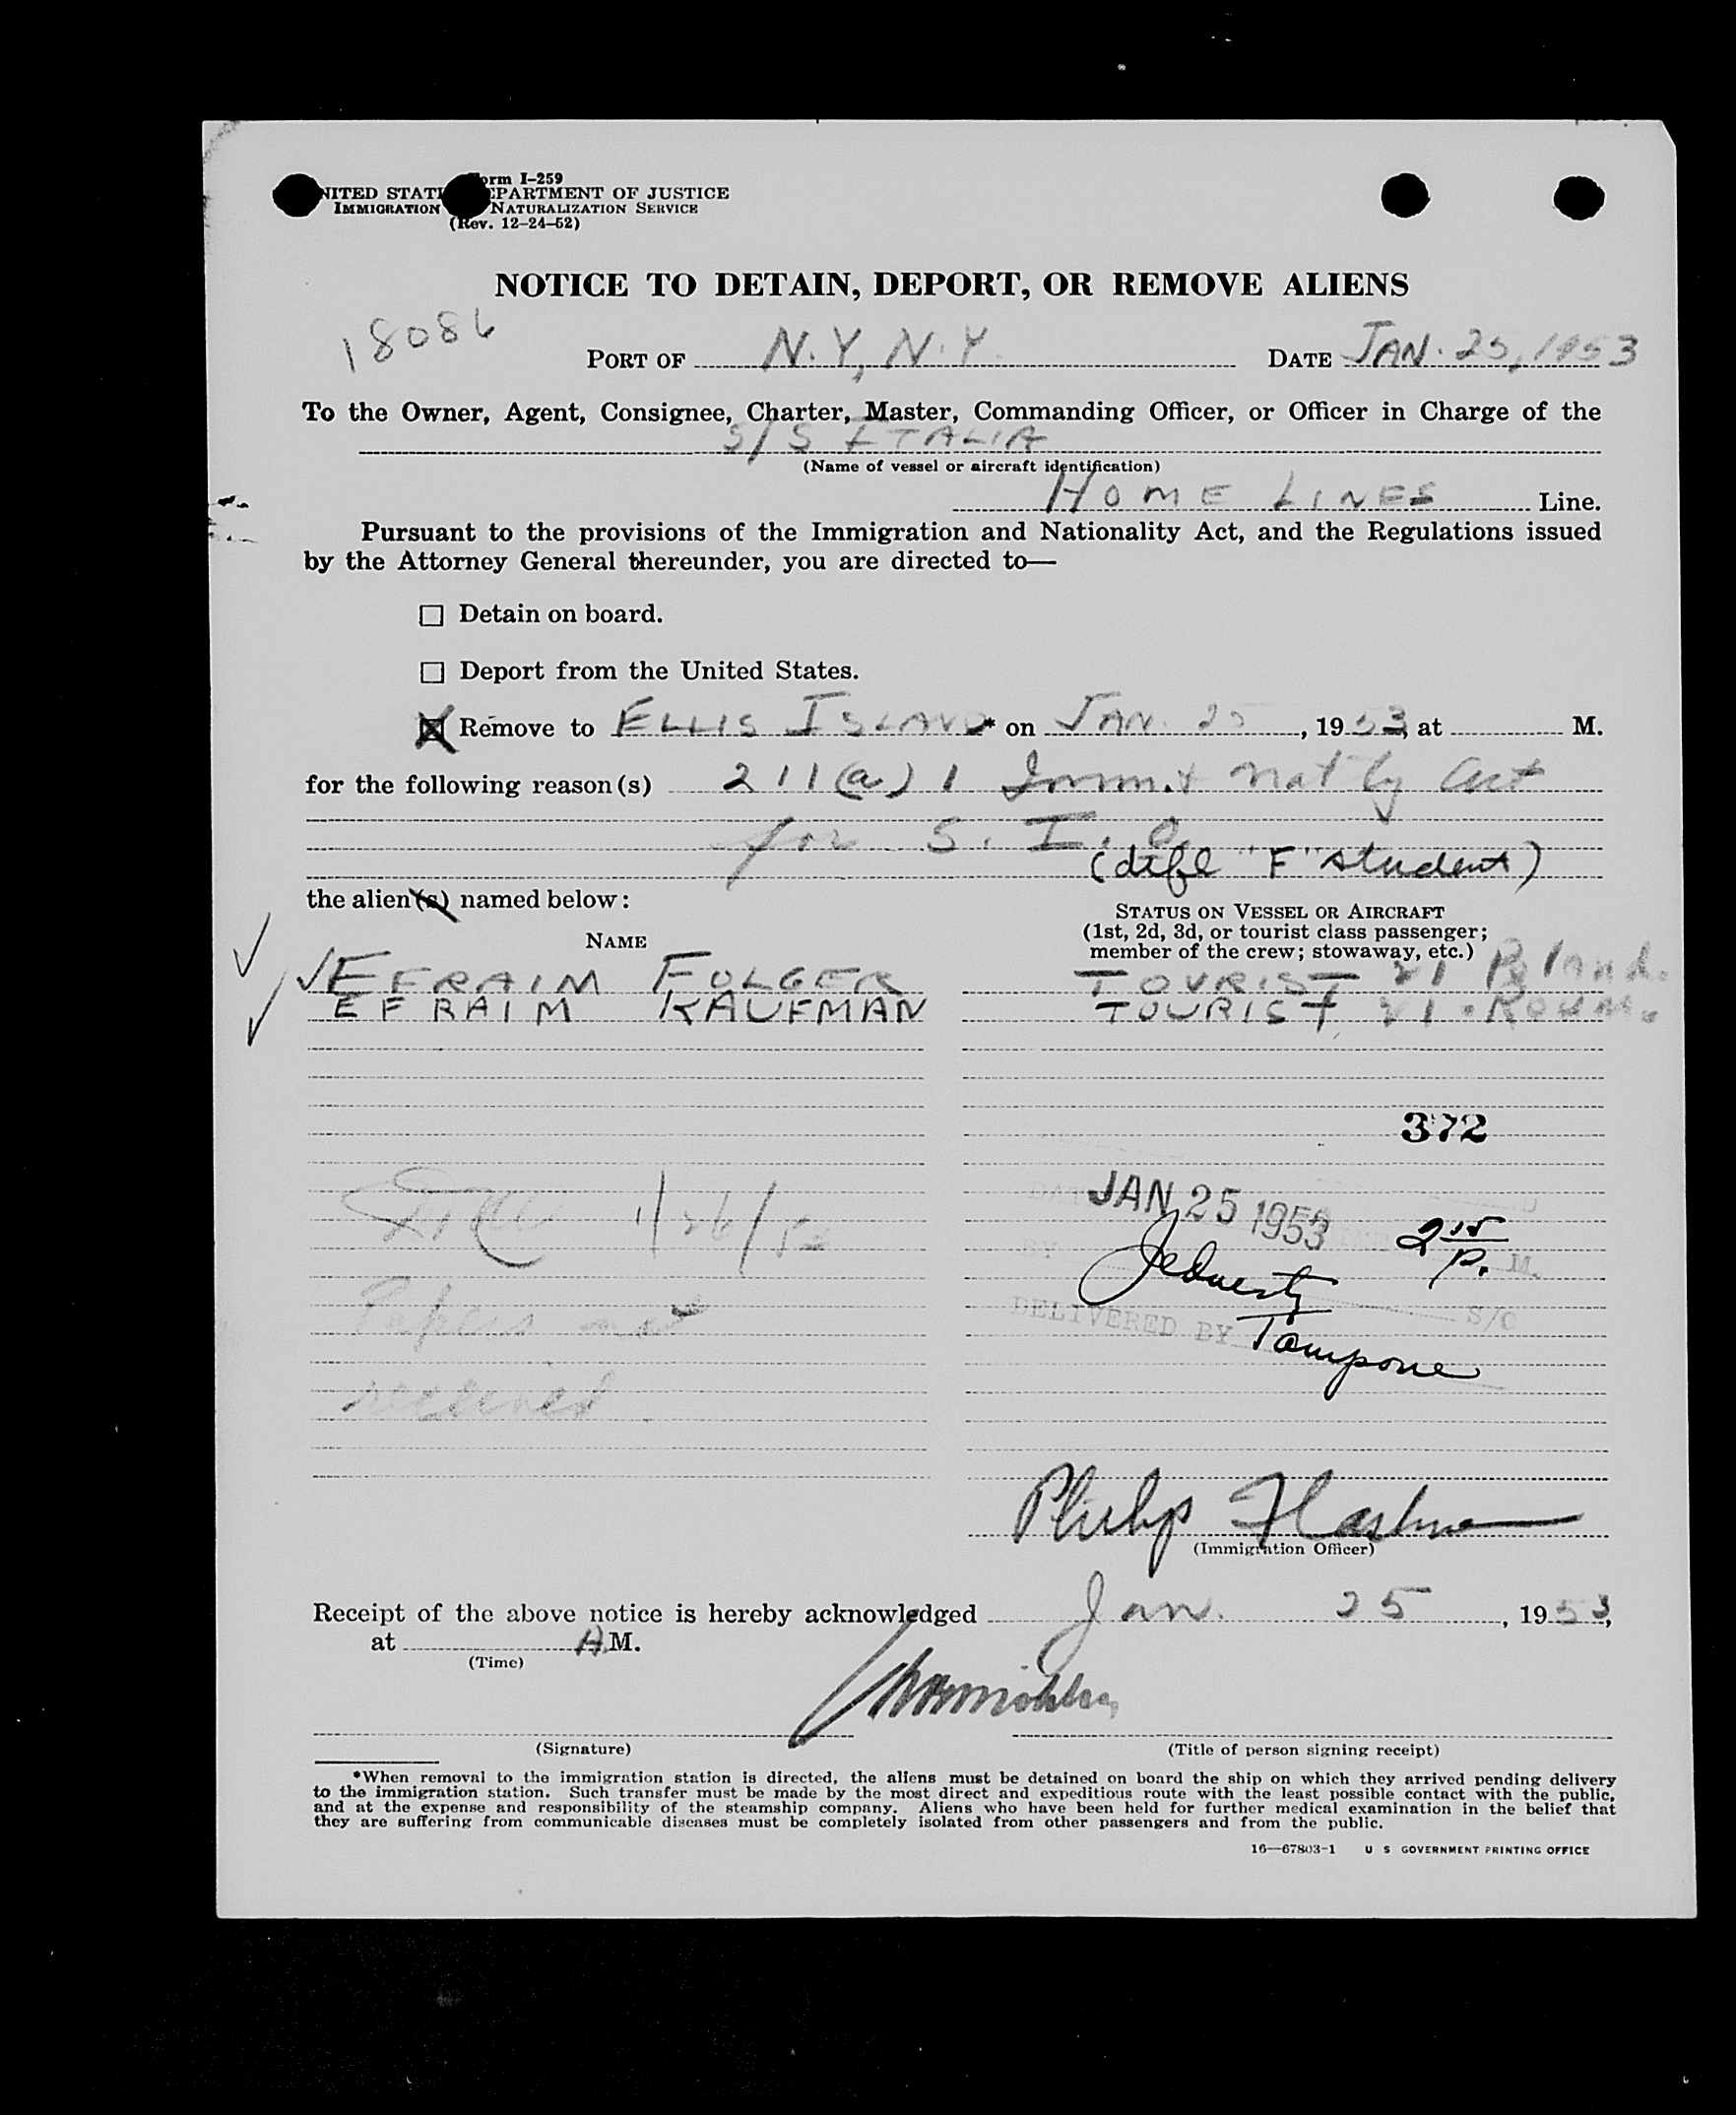 Form I-259
UNITED STATES DEPARTMENT OF JUSTICE
IMMIGRATION NATURALIZATION SERVICE
(Rev. 12-24-52)
NOTICE TO DETAIN, DEPORT, OR REMOVE ALIENS
18086
PORT OF N.Y, N.Y. DATE JAN. 25, 1953
To the Owner, Agent, Consignee, Charter, Master, Commanding Officer, or Officer in Charge of the
S/S ITALIA
(Name of vessel or aircraft identification)
HOME LINES Line.
Pursuant to the provisions of the Immigration and Nationality Act, and the Regulations issued
by the Attorney General thereunder, you are directed to—
☐ Detain on board.
☐ Deport from the United States.
☒ Remove to ELLIS ISLAND* on JAN. 25, 1953, at M.
for the following reason(s) 211(a) 1 Imm. & Nat'ly Act
for S. I. O.
(difl "F" student)
the alien(s) named below:
STATUS ON VESSEL OR AIRCRAFT
(1st, 2d, 3d, or tourist class passenger;
member of the crew; stowaway, etc.)
NAME
✓ EFRAIM FOLGER TOURIST 21 Poland.
✓ EFRAIM KAUFMAN TOURIST 21. Roum.
372
JAN 25 1953
1/26/53
2 15 P. M.
BY
Papers not
S/O
DELIVERED BY Tampone
received
Philip
(Immigration Officer)
Receipt of the above notice is hereby acknowledged Jan. 25, 1953,
at A.M.
(Time)
(Signature) (Title of person signing receipt)
*When removal to the immigration station is directed, the aliens must be detained on board the ship on which they arrived pending delivery
to the immigration station. Such transfer must be made by the most direct and expeditious route with the least possible contact with the public,
and at the expense and responsibility of the steamship company. Aliens who have been held for further medical examination in the belief that
they are suffering from communicable diseases must be completely isolated from other passengers and from the public.
16—67803-1 U S GOVERNMENT PRINTING OFFICE